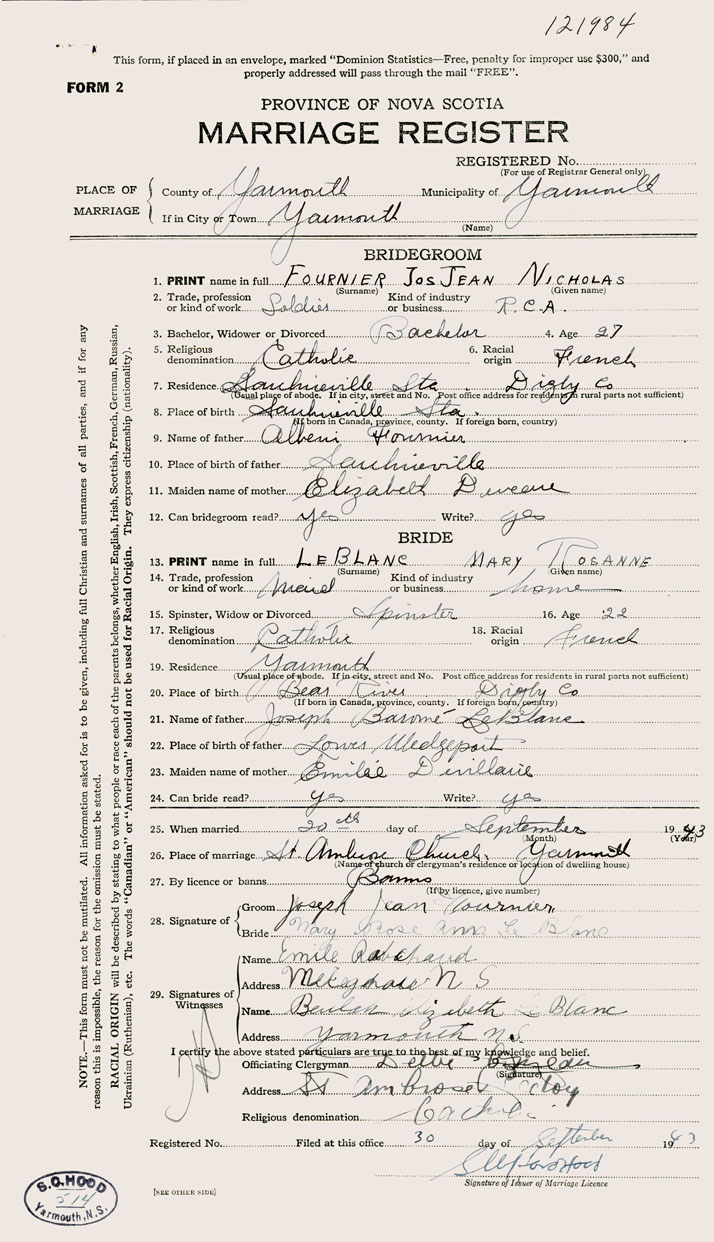 121984
This form, if placed in an envelope, marked "Dominion Statistics—Free, penalty for improper use $300," and
properly addressed will pass through the mail "FREE".
FORM 2
PROVINCE OF NOVA SCOTIA
MARRIAGE REGISTER
REGISTERED No.
(For use of Registrar General only)
PLACE OF MARRIAGE
County of Yarmouth Municipality of Yarmouth
If in City or Town Yarmouth
(Name)
BRIDEGROOM
1. PRINT name in full FOURNIER JOS JEAN NICHOLAS
(Surname) (Given name)
2. Trade, profession or kind of work Soldier Kind of industry or business R.C.A.
3. Bachelor, Widower or Divorced Bachelor 4. Age 27
5. Religious denomination Catholic 6. Racial origin French
7. Residence Saulnieville Sta. Digby Co
(Usual place of abode. If in city, street and No. Post office address for residents in rural parts not sufficient)
8. Place of birth Saulnieville Sta.
(If born in Canada, province, county. If foreign born, country)
9. Name of father Albeni Fournier
10. Place of birth of father Saulnieville
11. Maiden name of mother Elizabeth
12. Can bridegroom read? yes Write? yes
BRIDE
13. PRINT name in full LEBLANC MARY ROSANNE
(Surname) Given name)
14. Trade, profession or kind of work Maid Kind of industry or business home
15. Spinster, Widow or Divorced Spinster 16. Age 22
17. Religious denomination Catholic 18. Racial origin French
19. Residence Yarmouth
(Usual place of abode. If in city, street and No. Post office address for residents in rural parts not sufficient)
20. Place of birth Bear River Digby Co
(If born in Canada, province, county. If foreign born, country)
21. Name of father Joseph Baromé LeBlanc
22. Place of birth of father Lower Wedgeport
23. Maiden name of mother Emilée
24. Can bride read? yes Write? yes
25. When married 20th day of September 1943
(Month) (Year)
26. Place of marriage St Ambrose Church, Yarmouth
(Name of church or clergyman's residence or location of dwelling house)
27. By licence or banns Banns
(If by licence, give number)
28. Signature of
Groom Joseph Jean Fournier
Bride Mary Rose Anna Le Blanc
29. Signatures of Witnesses
Name Emile
Address Meteghan N S
Name Beulah Elizabeth LeBlanc
Address Yarmouth N.S.
I certify the above stated particulars are true to the best of my knowledge and belief.
Officiating Clergyman
(Signature)
Address St Ambrose
Religious denomination
Registered No. Filed at this office 30 day of September 1943
Signature of Issuer of Marriage Licence
[SEE OTHER SIDE]
S.G. HOOD
514
Yarmouth, N.S.
NOTE.—This form must not be mutilated. All information asked for is to be given, including full Christian and surnames of all parties, and if for any
reason this is impossible, the reason for the omission must be stated.
RACIAL ORIGIN will be described by stating to what people or race each of the parents belongs, whether English, Irish, Scottish, French, German, Russian,
Ukrainian (Ruthenian), etc. The words "Canadian" or "American" should not be used for Racial Origin. They express citizenship (nationality).